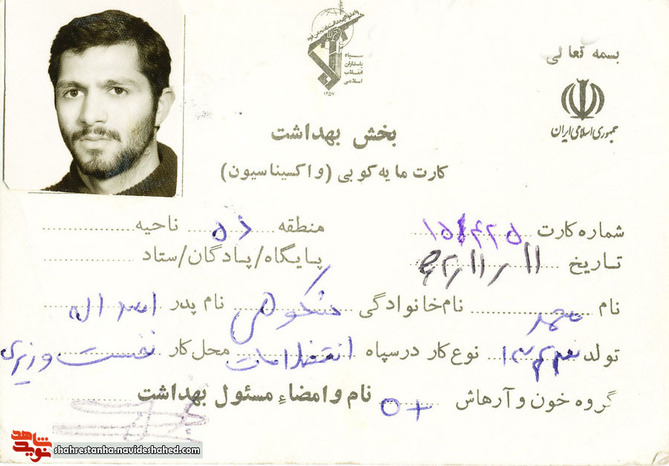 بسمه تعالی
سپاه
پاسداران
انقلاب
اسلامی
۱۳۵۷
جمهوری اسلامی ایران
بخش بهداشت
کارت مایه کوبی (واکسیناسیون)
شماره کارت ۱۵/۴۲۵ منطقه ناحیه
تاریخ پایگاه/پادگان/ستاد
نام محمد نام خانوادگی شکوهی نام پدر اسداله
تولد نوع کار در سپاه انتظامات محل کار نخست وزیری
گروه خون و آرهاش O+ نام و امضاء مسئول بهداشت
نوید شاهد
shahrestanha.navideshahed.com